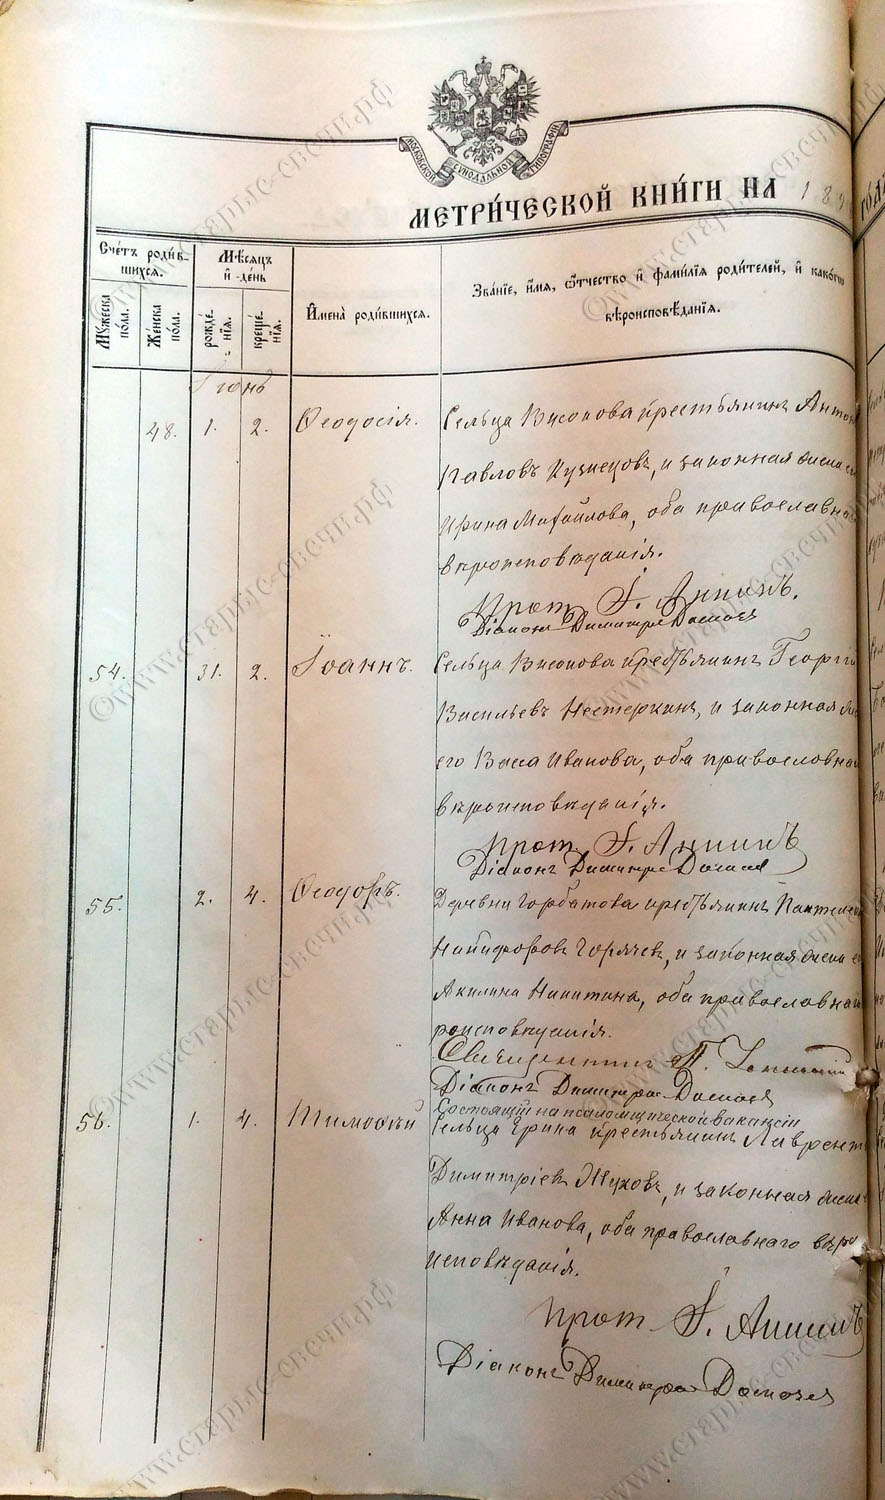 МОСКОВСКОЙ СѴНОДАЛЬНОЙ ТИПОГРАФІИ
МЕТРИ́ЧЕСКОЙ КНИ́ГИ НА 189
Сче́тъ роди́в-
шихся.
Мѣ́сяцъ
и҆ день
Мꙋ́жеска
по́ла.
Же́нска
по́ла.
рожде-
нїя.
креще́-
нїя.
И҆мена̀ роди́вшихся.
Зва́нїе, и҆́мя, ѻ҆́тчество и҆ фами́лїя роди́телей, и҆ како́гѡ
вѣроисповѣ́данїя.
Іюнь
48. 1. 2. Ѳеодосія. Сельца Висонова крестьянинъ Антон
Павловъ Кузнецовъ, и законная жена его
Ирина Михайлова, оба православна
вѣроисповѣданія.
Прот. І. Аничинъ.
Діаконъ Димитрій
54. 31. 2. Іоаннъ. Сельца Висонова крестьянинъ Георгій
Васильевъ Нестеркинъ, и законная же
его Васса Иванова, оба православна
вѣроисповѣданія.
Прот. І.
Діаконъ Димитрій
55. 2. 4. Ѳеодоръ. Деревни Горбатова крестьянинъ Пантелей
Никифоровъ Горячевъ, и законная жена е
Акилина Никитина, оба православна
роисповѣданія.
Священникъ П.
Діаконъ Димитрій
Состоящій на псаломщической вакансіи
56. 1. 4. Тимоѳей Сельца Ерина крестьянинъ Лаврент
Димитріевъ Жуковъ, и законная жена
Анна Иванова, оба православнаго вѣро
исповѣданія.
Прот. І.
Діаконъ Димитрій
©www.старые-свечи.рф